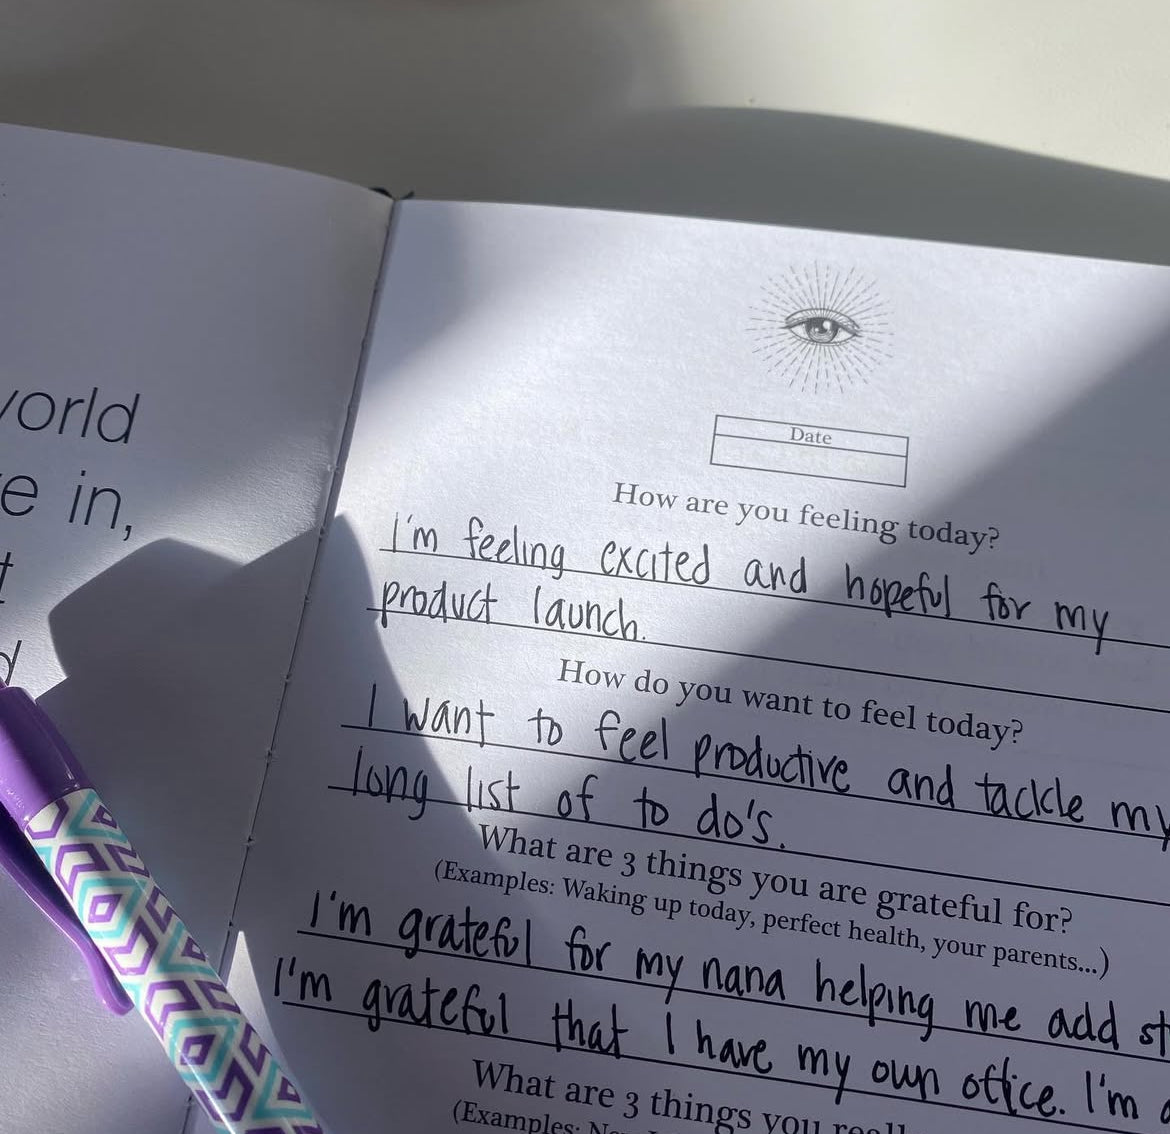 world
e in,
Date
How are you feeling today?
I'm feeling excited and hopeful for my
product launch.
How do you want to feel today?
I want to feel productive and tackle my
long list of to do's.
What are 3 things you are grateful for?
(Examples: Waking up today, perfect health, your parents...)
I'm grateful for my nana helping me add st
I'm grateful that I have my own office. I'm
What are 3 things you
(Examples: